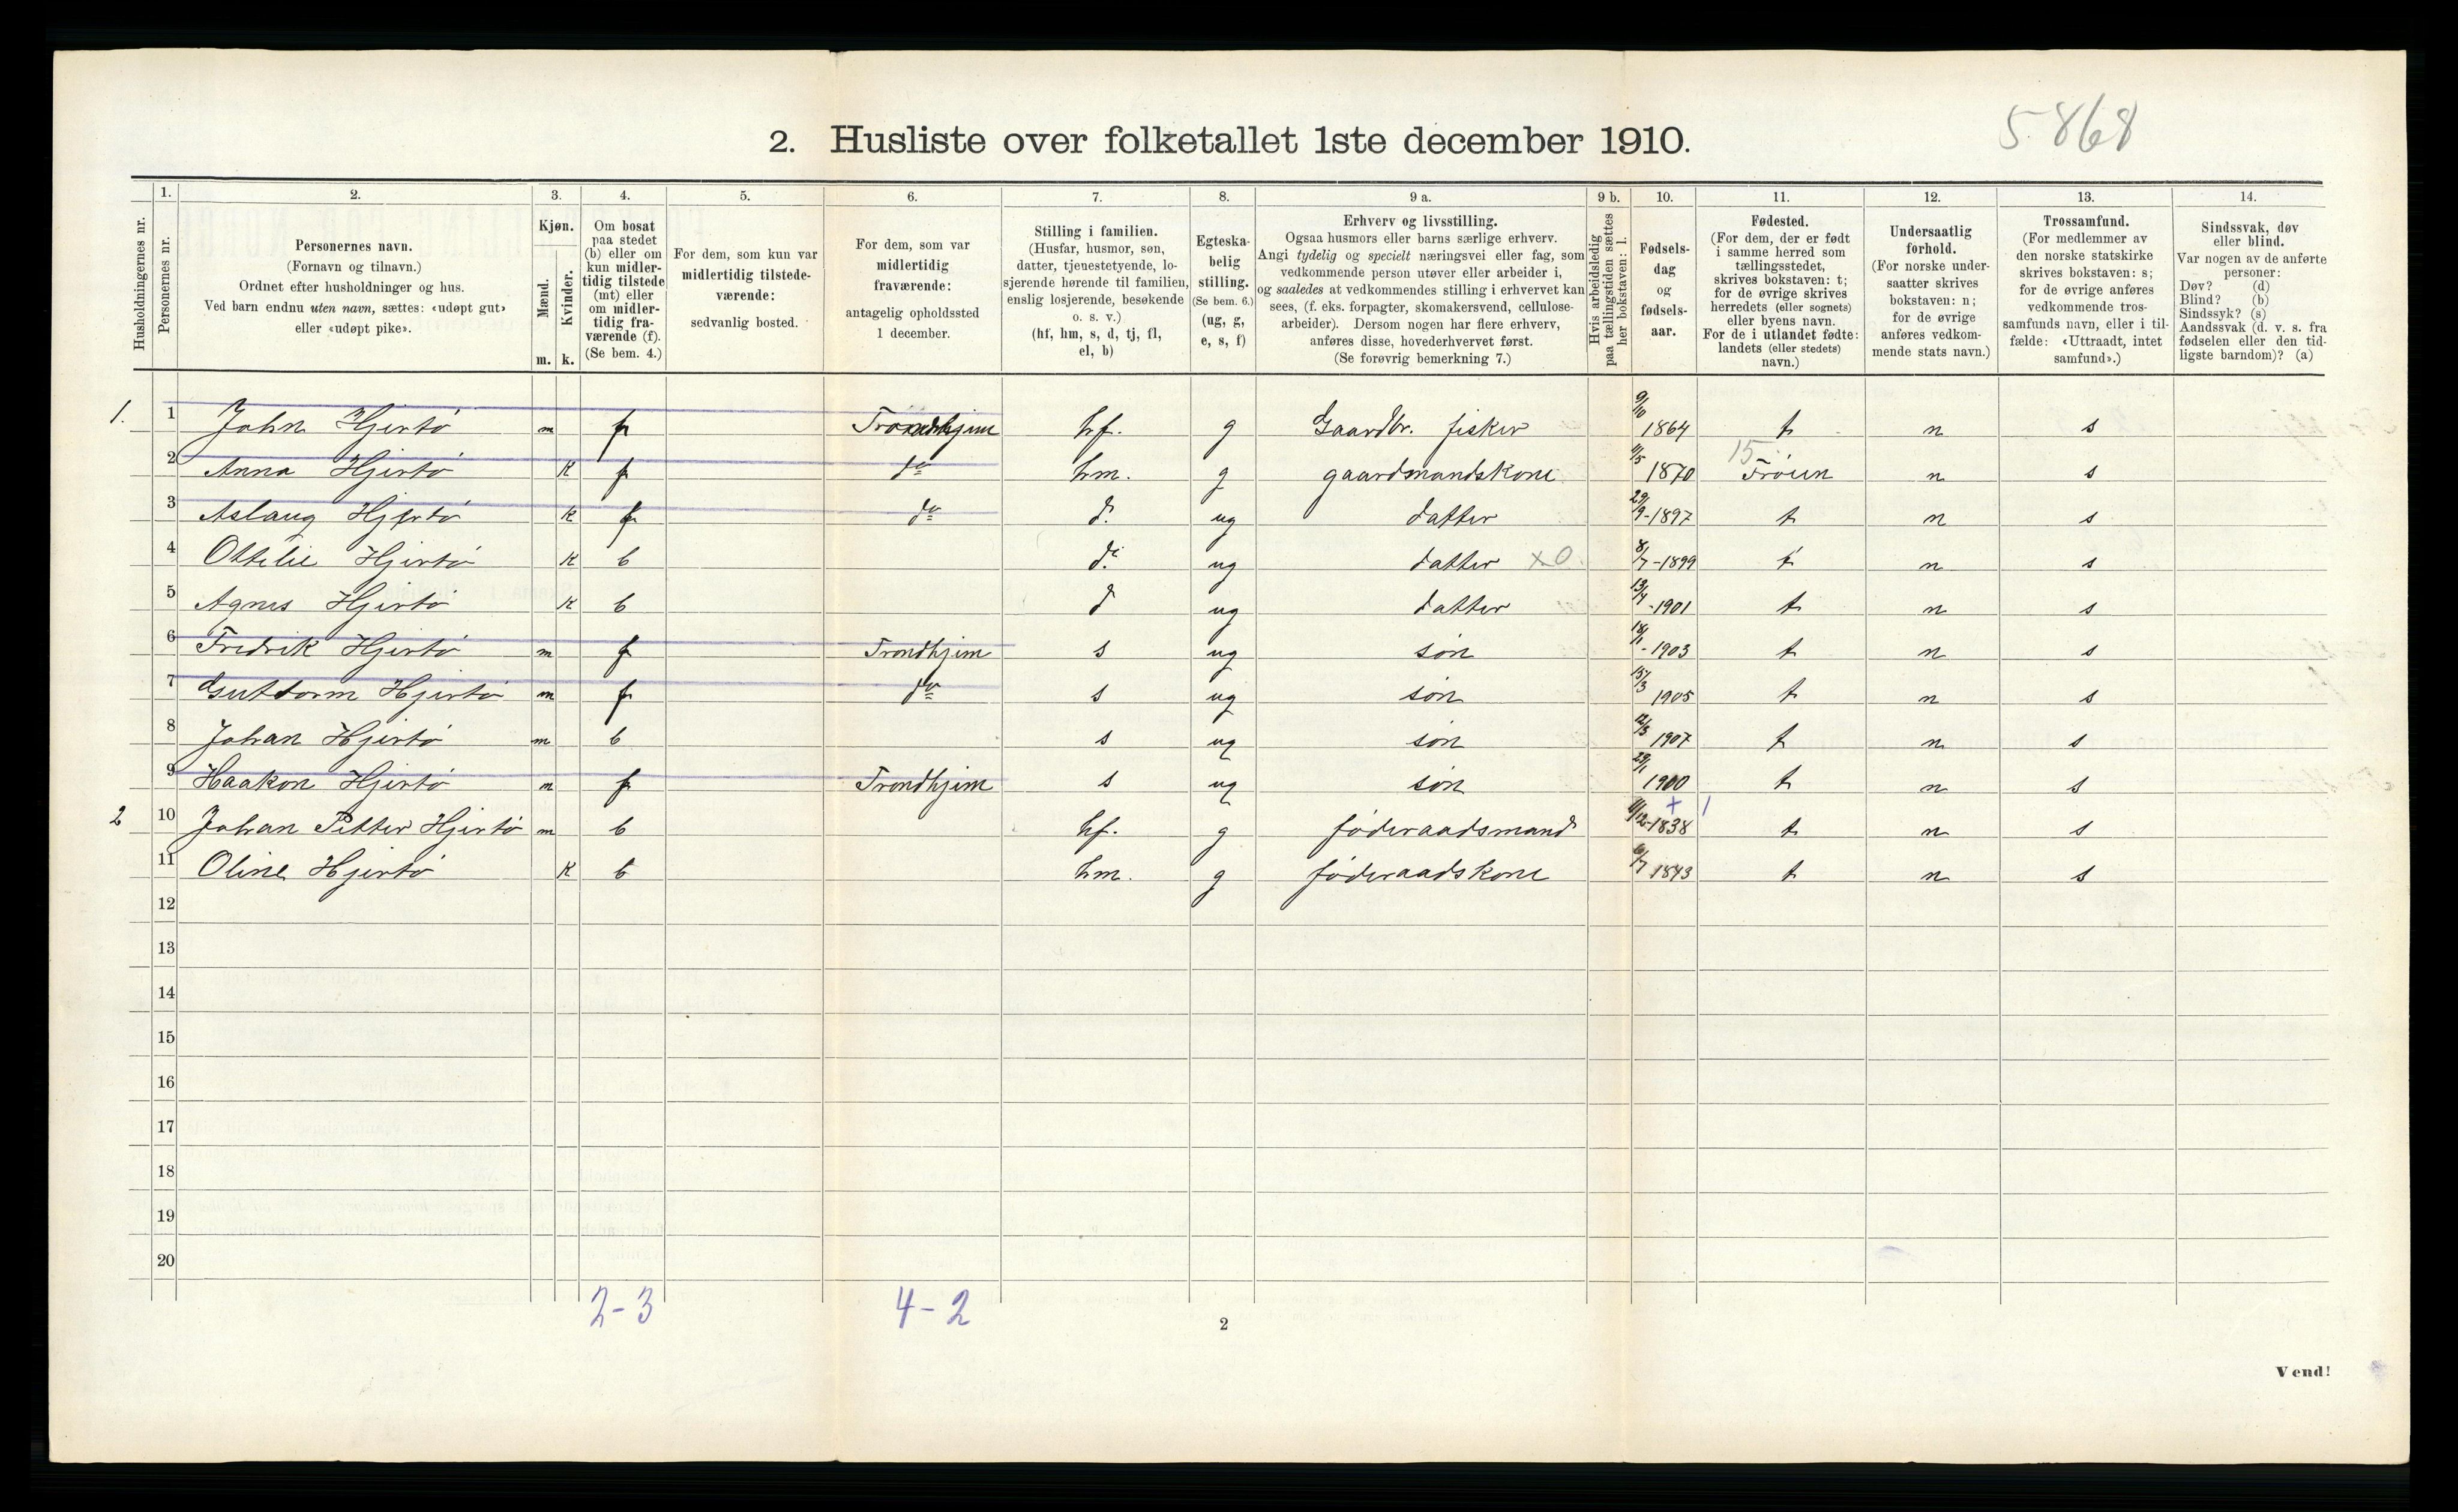 5868
2. Husliste over folketallet 1ste december 1910.
Husholdningernes nr.
1.
Personernes nr.
2.
Personernes navn.
(Fornavn og tilnavn.)
Ordnet efter husholdninger og hus.
Ved barn endnu uten navn, sættes: «udøpt gut»
eller «udøpt pike».
3.
Kjøn.
Mænd.
Kvinder.
m. k.
4.
Om bosat
paa stedet
(b) eller om
kun midler-
tidig tilstede
(mt) eller
om midler-
tidig fra-
værende (f).
(Se bem. 4.)
5.
For dem, som kun var
midlertidig tilstede-
værende:
sedvanlig bosted.
6.
For dem, som var
midlertidig
fraværende:
antagelig opholdssted
1 december.
7.
Stilling i familien.
(Husfar, husmor, søn,
datter, tjenestetyende, lo-
sjerende hørende til familien,
enslig losjerende, besøkende
o. s. v.)
(hf, hm, s, d, tj, fl,
el, b)
8.
Egteska-
belig
stilling.
(Se bem. 6.)
(ug, g,
e, s, f)
9 a.
Erhverv og livsstilling.
Ogsaa husmors eller barns særlige erhverv.
Angi tydelig og specielt næringsvei eller fag, som
vedkommende person utøver eller arbeider i,
og saaledes at vedkommendes stilling i erhvervet kan
sees, (f. eks. forpagter, skomakersvend, cellulose-
arbeider). Dersom nogen har flere erhverv,
anføres disse, hovederhvervet først.
(Se forøvrig bemerkning 7.)
9 b.
Hvis arbeidsledig
paa tællingstiden sættes
her bokstaven: l.
10.
Fødsels-
dag
og
fødsels-
aar.
11.
Fødested.
(For dem, der er født
i samme herred som
tællingsstedet,
skrives bokstaven: t;
for de øvrige skrives
herredets (eller sognets)
eller byens navn.
For de i utlandet fødte:
landets (eller stedets)
navn.)
12.
Undersaatlig
forhold.
(For norske under-
saatter skrives
bokstaven: n;
for de øvrige
anføres vedkom-
mende stats navn.)
13.
Trossamfund.
(For medlemmer av
den norske statskirke
skrives bokstaven: s;
for de øvrige anføres
vedkommende tros-
samfunds navn, eller i til-
fælde: «Uttraadt, intet
samfund».)
14.
Sindssvak, døv
eller blind.
Var nogen av de anførte
personer:
Døv? (d)
Blind? (b)
Sindssyk? (s)
Aandssvak (d. v. s. fra
fødselen eller den tid-
ligste barndom)? (a)
1. 1 John Hjertø m f Trondhjem hf. g Gaardbr. fisker 9/10 1864 t n s
2 Anna Hjertø k f do hm. g gaardmandskone 1870 15 Frøien n s
3 Aslaug Hjertø k f do d. ug datter 29/9-1897 t n s
4 Ottelie Hjertø k b d. ug datter x0 8/7-1899 t n s
5 Agnes Hjertø k b d ug datter 13/4-1901 t n s
6 Fredrik Hjertø m f Trondhjem s ug søn 18/1-1903 t n s
7 Guttorm Hjertø m f do s ug søn 15/3 1905 t n s
8 Johan Hjertø m b s ug søn 12/5 1907 t n s
9 Haakon Hjertø m f Trondhjem s ug søn 29/1 1900 t n s
2 10 Johan Petter Hjertø m b hf. g føderaadsmand 11/12-1838 + 1 t n s
11 Oline Hjertø k b hm. g føderaadskone 6/7 1843 t n s
12
13
14
15
16
17
18
19
20
2-3 4-2
2
Vend!